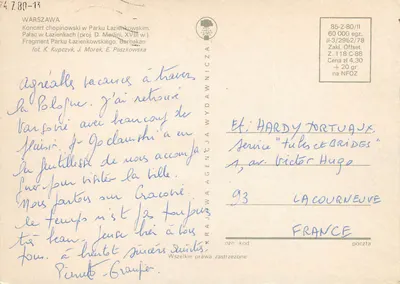 24.7.80-13
WARSZAWA
Koncert chopinowski w Parku Łazienkowskim
Pałac w Łazienkach (proj. D. Merlini, XVIII w.)
Fragment Parku Łazienkowskiego. Barbakan
fot. K. Kaprzyk, J. Morek, E. Piaskowska
KRAJOWA AGENCJA WYDAWNICZA
85-2-80/II
60 000 egz.
p-3/2962/78
Zakł. Offset
Z. 118 C-88
Cena zł 4,30
+ 20 gr
na NFOZ
Agréables vacances à travers
la Pologne. J'ai retrouvé
Varsovie avec beaucoup de
plaisir. Jo a eu
la gentillesse de nous accompa
gner pour visiter la ville.
Nous partons sur Cracovie
le temps n'est pas toujours
très beau. Pense bien à vous
tous. à bientôt sincères amitiés
Pierrette
Ets HARDY TORTUAUX
service "tubes CE BRIDES"
, av. Victor Hugo
93 LA COURNEUVE
FRANCE
ulr kod poczta
Wszelkie prawa zastrzeżone